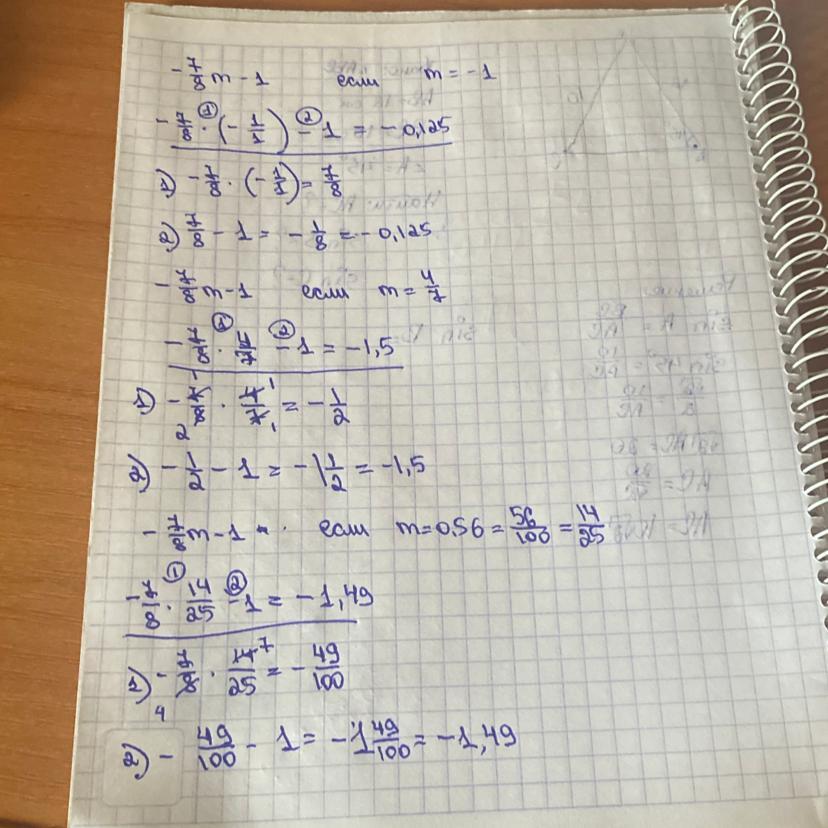 -7/8 m - 1 если m = -1
-7/8 · (-1/1) - 1 = -0,125
1) -7/8 · (-1/1) = 7/8
2) 7/8 - 1 = -1/8 = -0,125
-7/8 m - 1 если m = 4/7
-7/8 · 4/7 - 1 = -1,5
1) -7/8 · 4/7 = -1/2
2) -1/2 - 1 = -1 1/2 = -1,5
-7/8 m - 1 если m = 0,56 = 56/100 = 14/25
-7/8 · 14/25 - 1 = -1,49
1) -7/8 · 14/25 = -49/100
2) -49/100 - 1 = -1 49/100 = -1,49